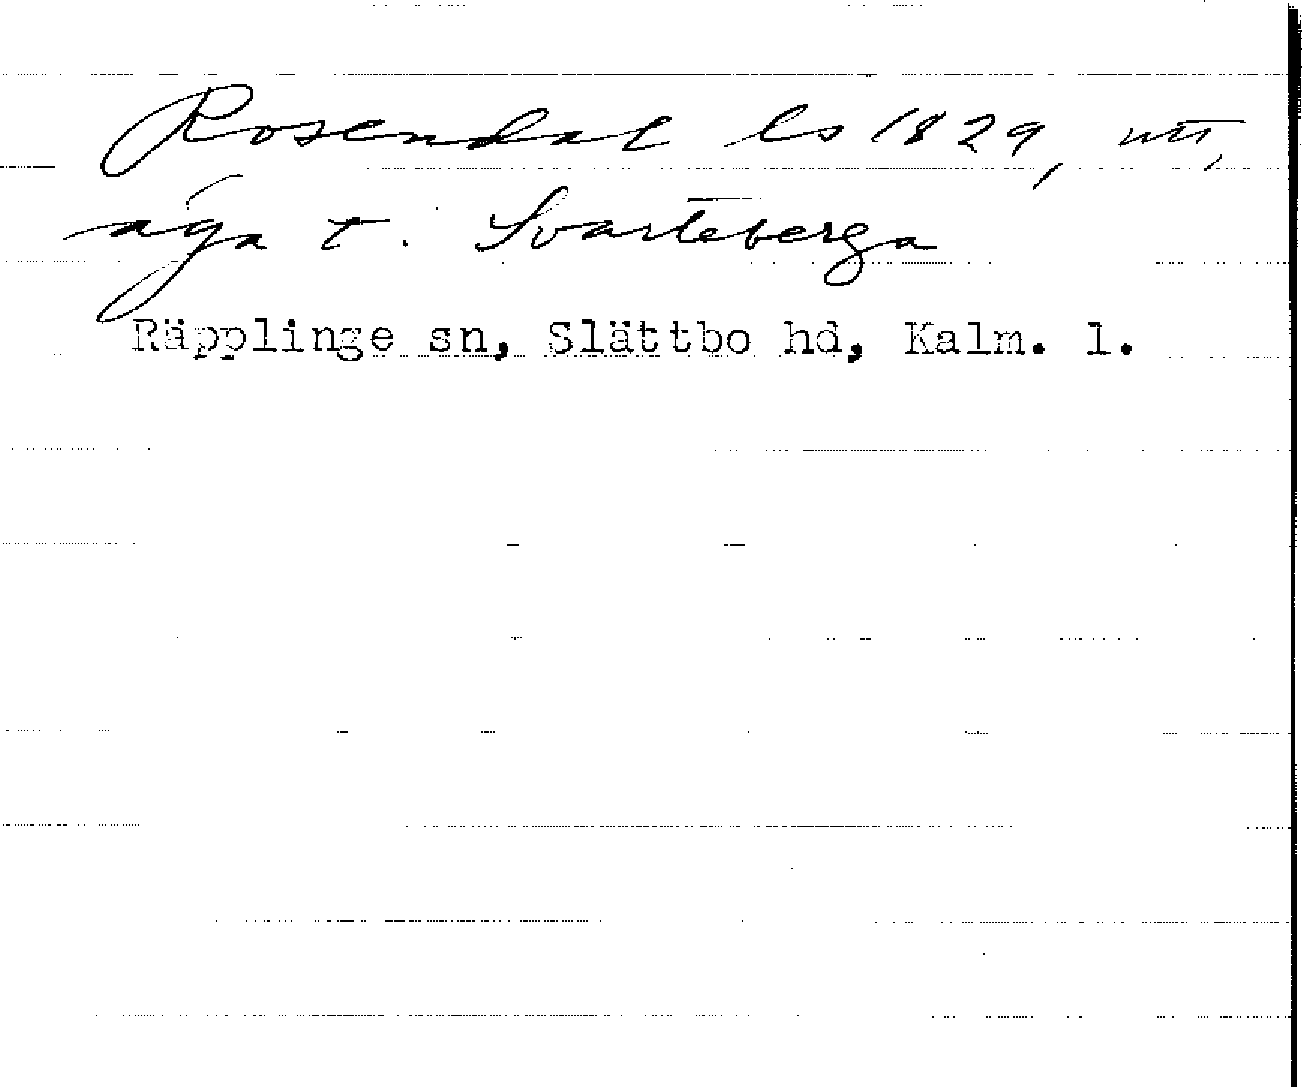 Rosendal ls 1829, utt,
äga t. Svarteberga
Räpplinge sn, Slättbo hd, Kalm. l.